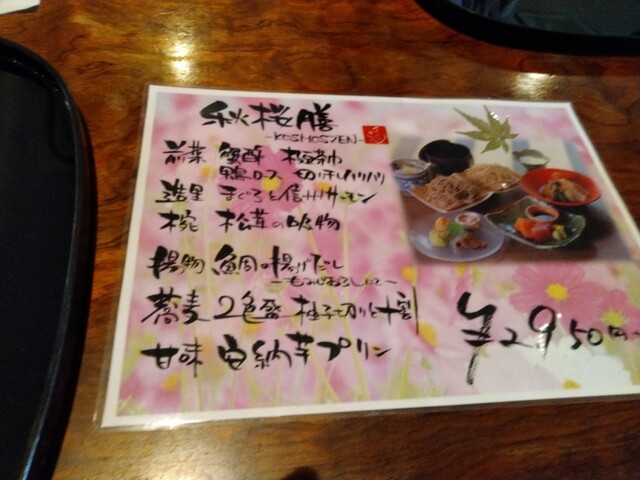 秋桜膳
-KOSMOSZEN-
前菜
鴨ロース 切り干しハリハリ
造里 まぐろと信州サーモン
椀 松茸の吸物
揚物 鯛の揚げだし
-もみじおろしに-
蕎麦 2色盛 柚子切りと十割
甘味 安納芋プリン
¥2950円